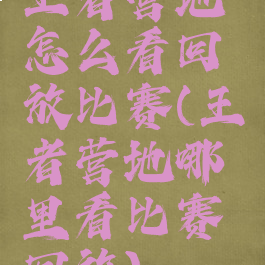 王者营地
怎么看回
放比赛(王
者营地哪
里看比赛
回放)